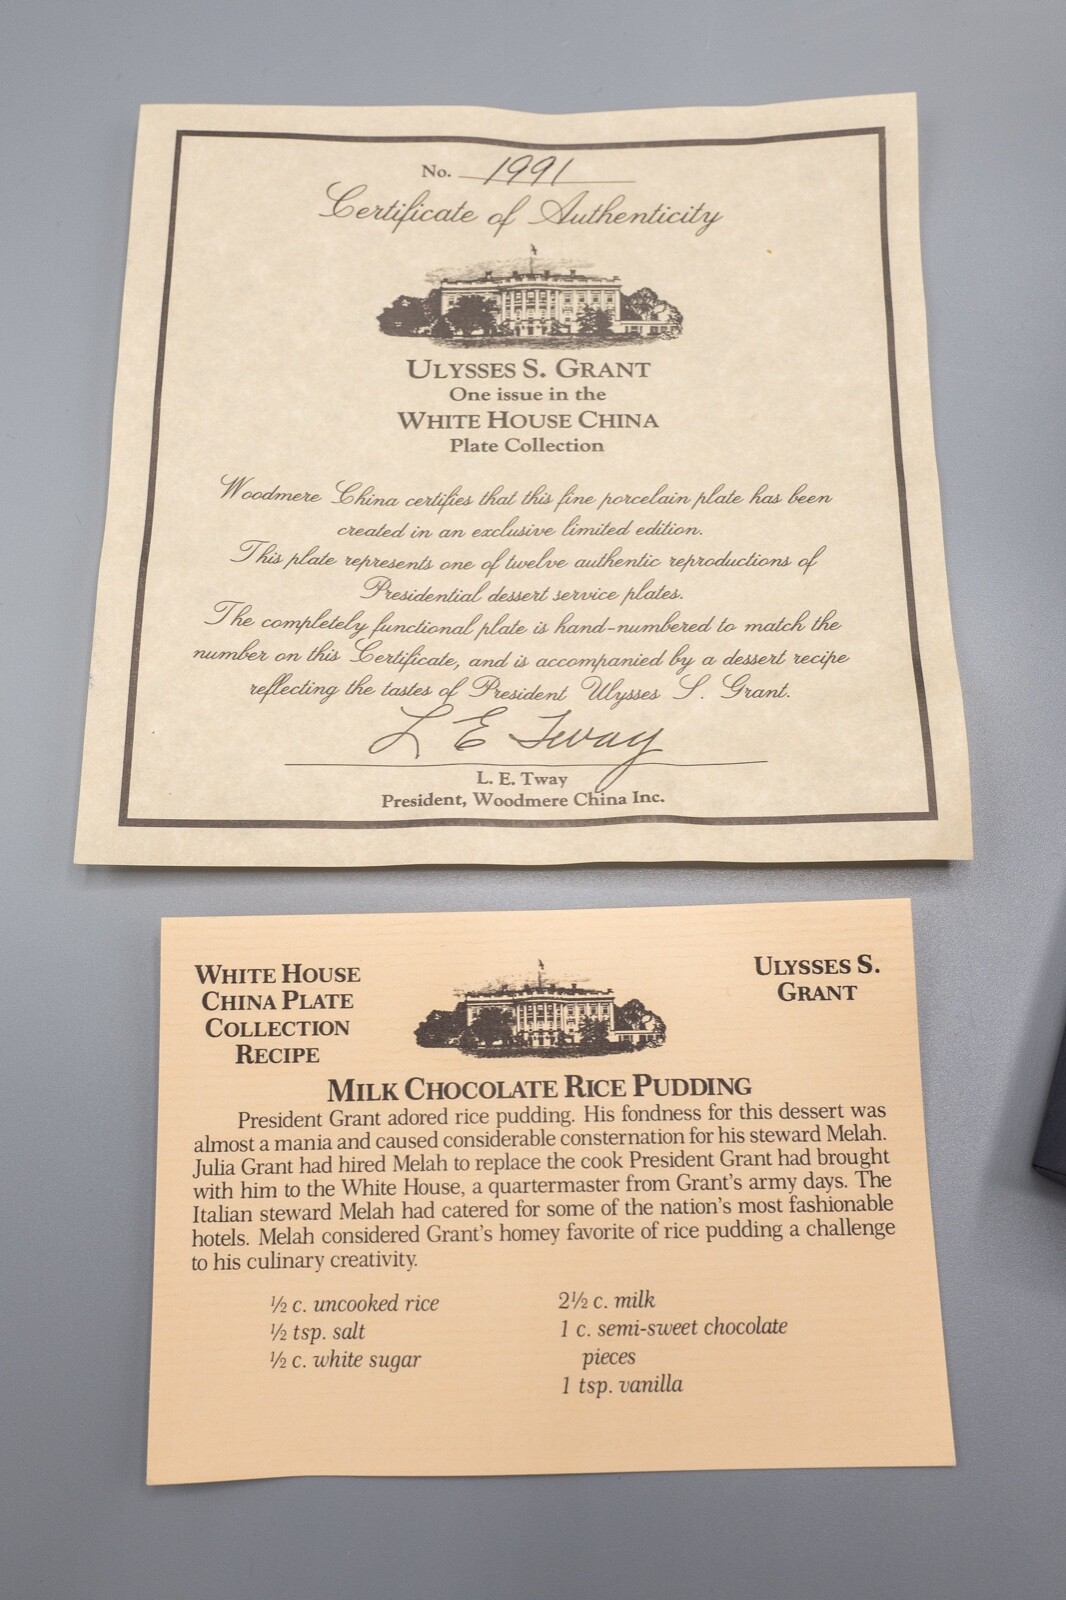 No. 1991
Certificate of Authenticity
ULYSSES S. GRANT
One issue in the
WHITE HOUSE CHINA
Plate Collection
Woodmere China certifies that this fine porcelain plate has been
created in an exclusive limited edition.
This plate represents one of twelve authentic reproductions of
Presidential dessert service plates.
The completely functional plate is hand-numbered to match the
number on this Certificate, and is accompanied by a dessert recipe
reflecting the tastes of President Ulysses S. Grant.
L E Tway
L. E. Tway
President, Woodmere China Inc.
WHITE HOUSE
CHINA PLATE
COLLECTION
RECIPE
ULYSSES S.
GRANT
MILK CHOCOLATE RICE PUDDING
President Grant adored rice pudding. His fondness for this dessert was
almost a mania and caused considerable consternation for his steward Melah.
Julia Grant had hired Melah to replace the cook President Grant had brought
with him to the White House, a quartermaster from Grant's army days. The
Italian steward Melah had catered for some of the nation's most fashionable
hotels. Melah considered Grant's homey favorite of rice pudding a challenge
to his culinary creativity.
½ c. uncooked rice
½ tsp. salt
½ c. white sugar
2½ c. milk
1 c. semi-sweet chocolate
pieces
1 tsp. vanilla